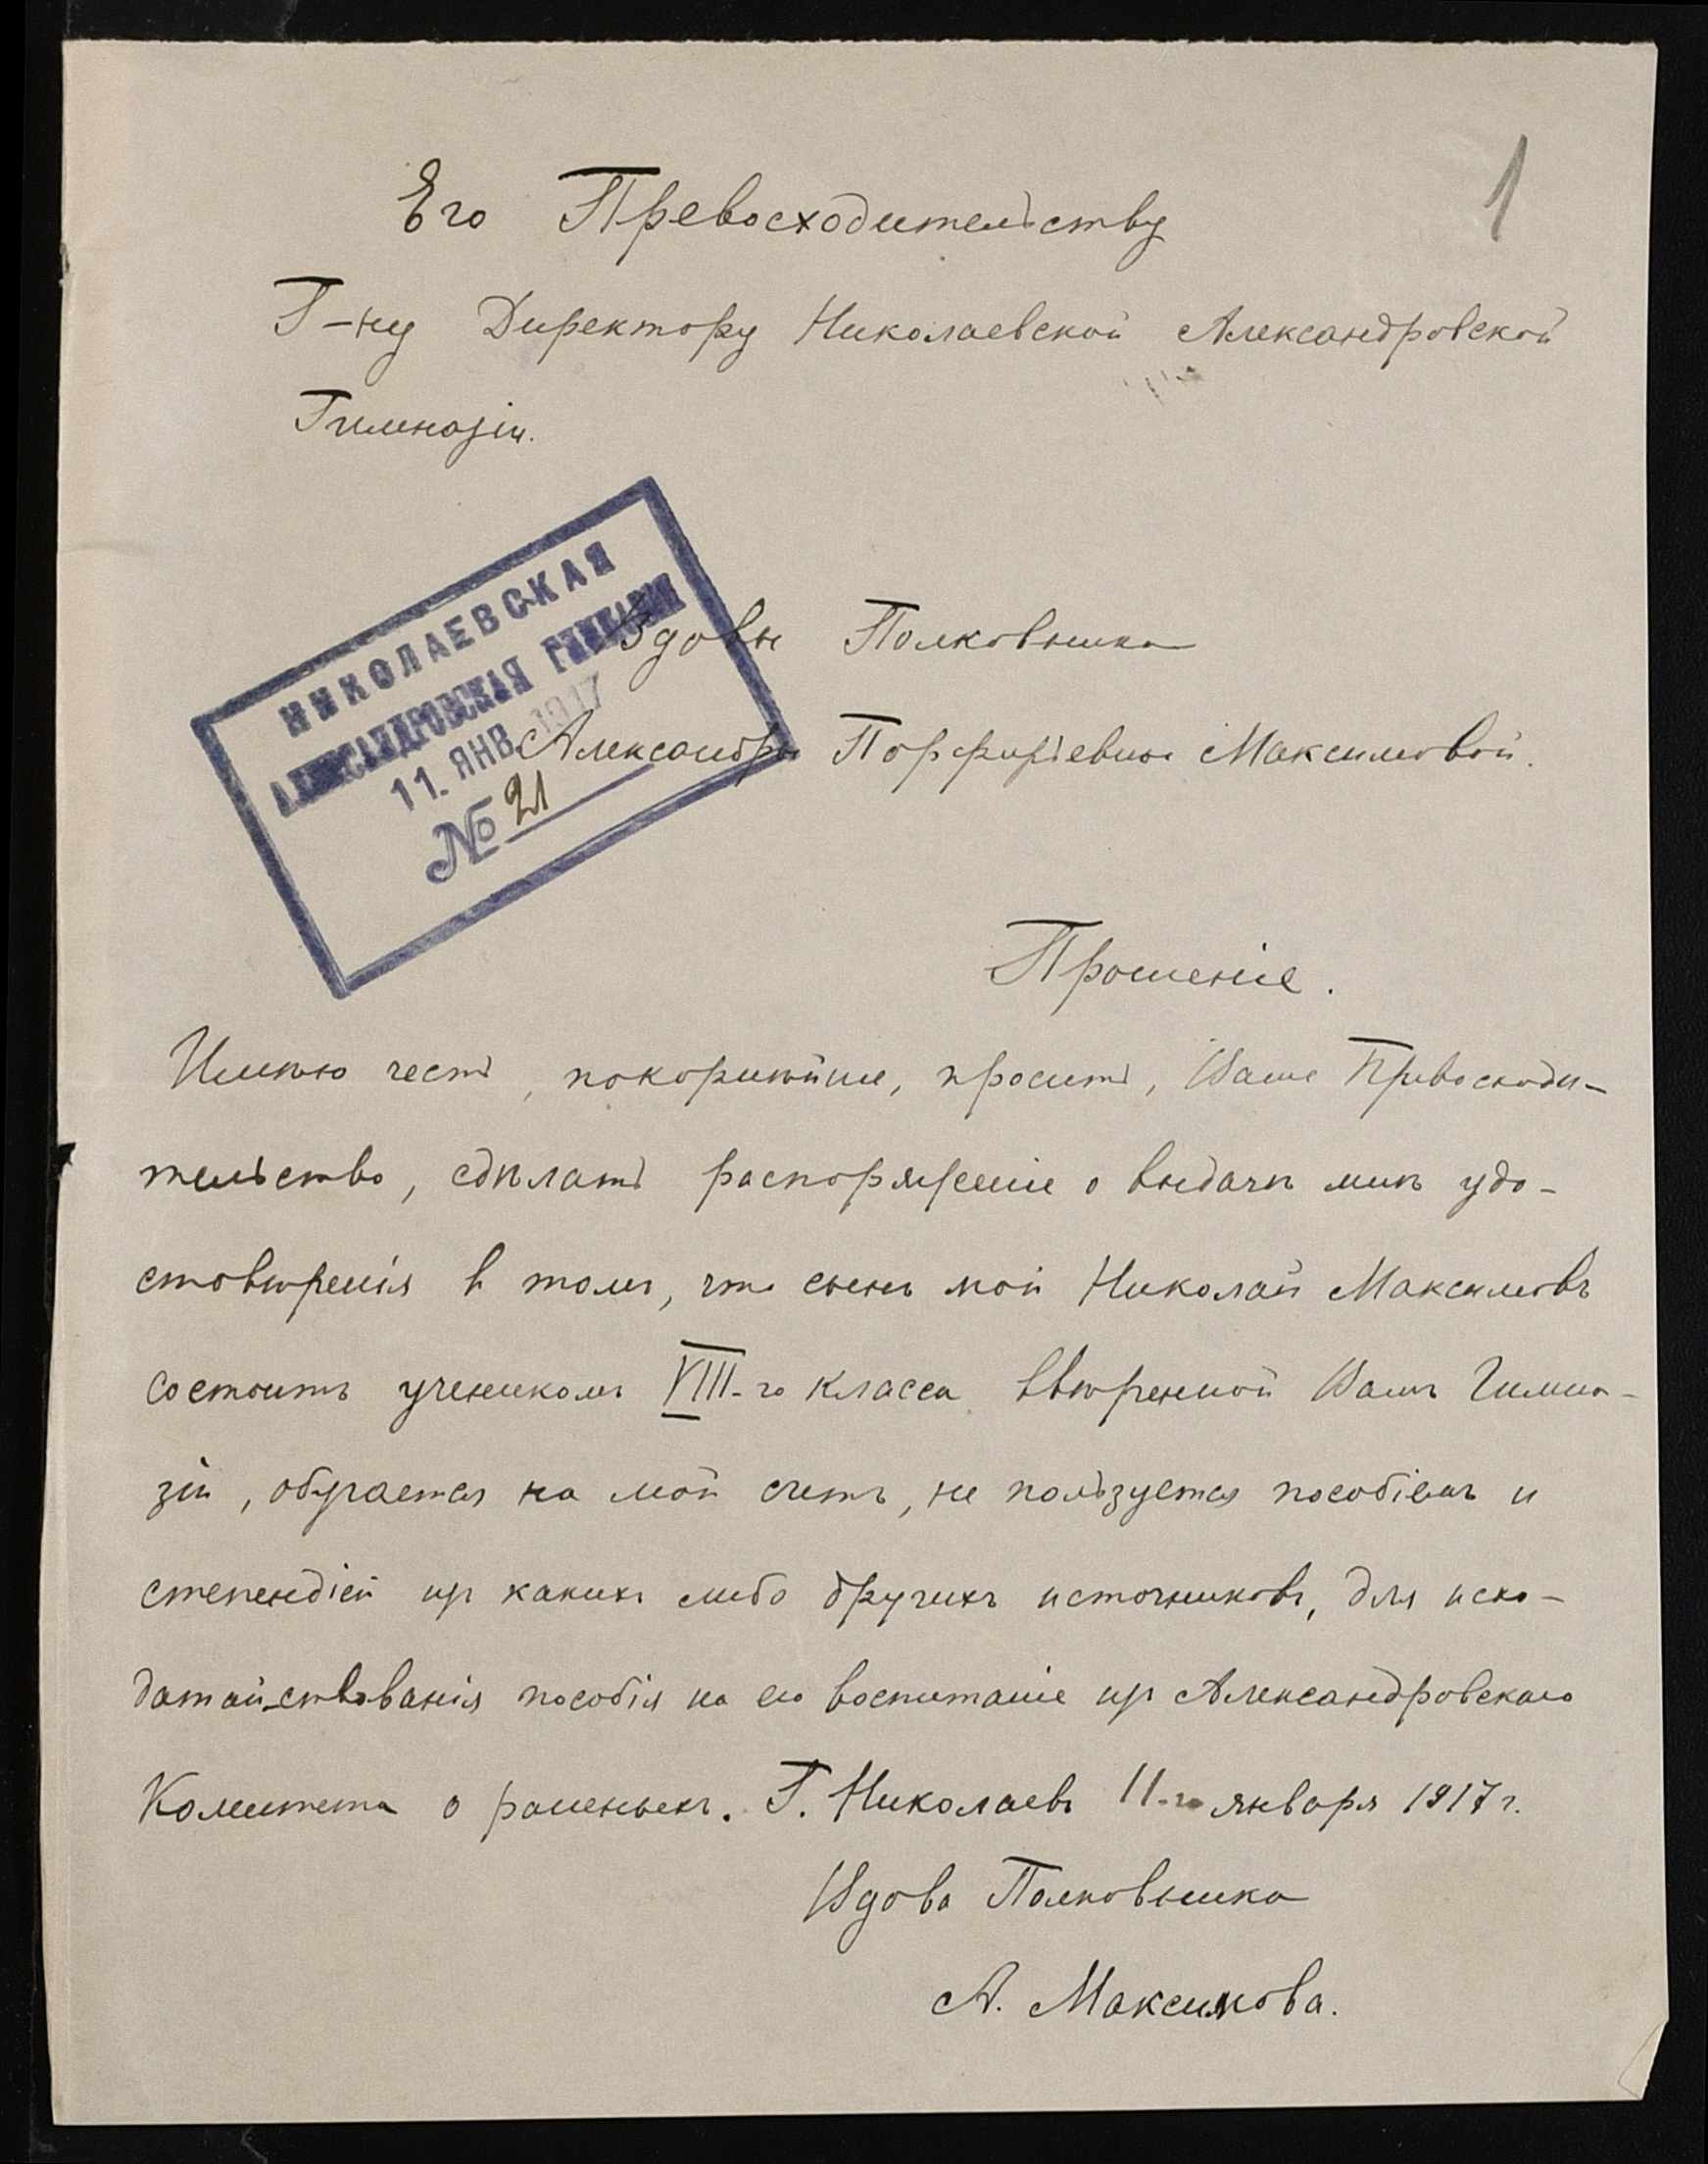 1
Его Превосходительству
Г-ну Директору Николаевской Александровской
Гимназіи.
НИКОЛАЕВСКАЯ
АЛЕКСАНДРОВСКАЯ ГИМНАЗІЯ
11. ЯНВ. 1917
№ 21
Вдовы Полковника
Александры Порфирьевны Максимовой.
Прошеніе.
Имѣю честь, покорнѣйше, просить, Ваше Превосходи-
тельство, сдѣлать распоряженіе о выдачѣ мнѣ удо-
стовѣренія в томъ, что сынъ мой Николай Максимовъ
состоитъ ученикомъ VIII-го класса ввѣренной Вамъ Гимна-
зіи, обучается на мой счетъ, не пользуется пособіемъ и
степендіей изъ какихъ либо другихъ источниковъ, для исхо-
датайствованія пособія на его воспитаніе изъ Александровскаго
Комитета о раненыхъ. Г. Николаевъ 11-го января 1917 г.
Вдова Полковника
А. Максимова.